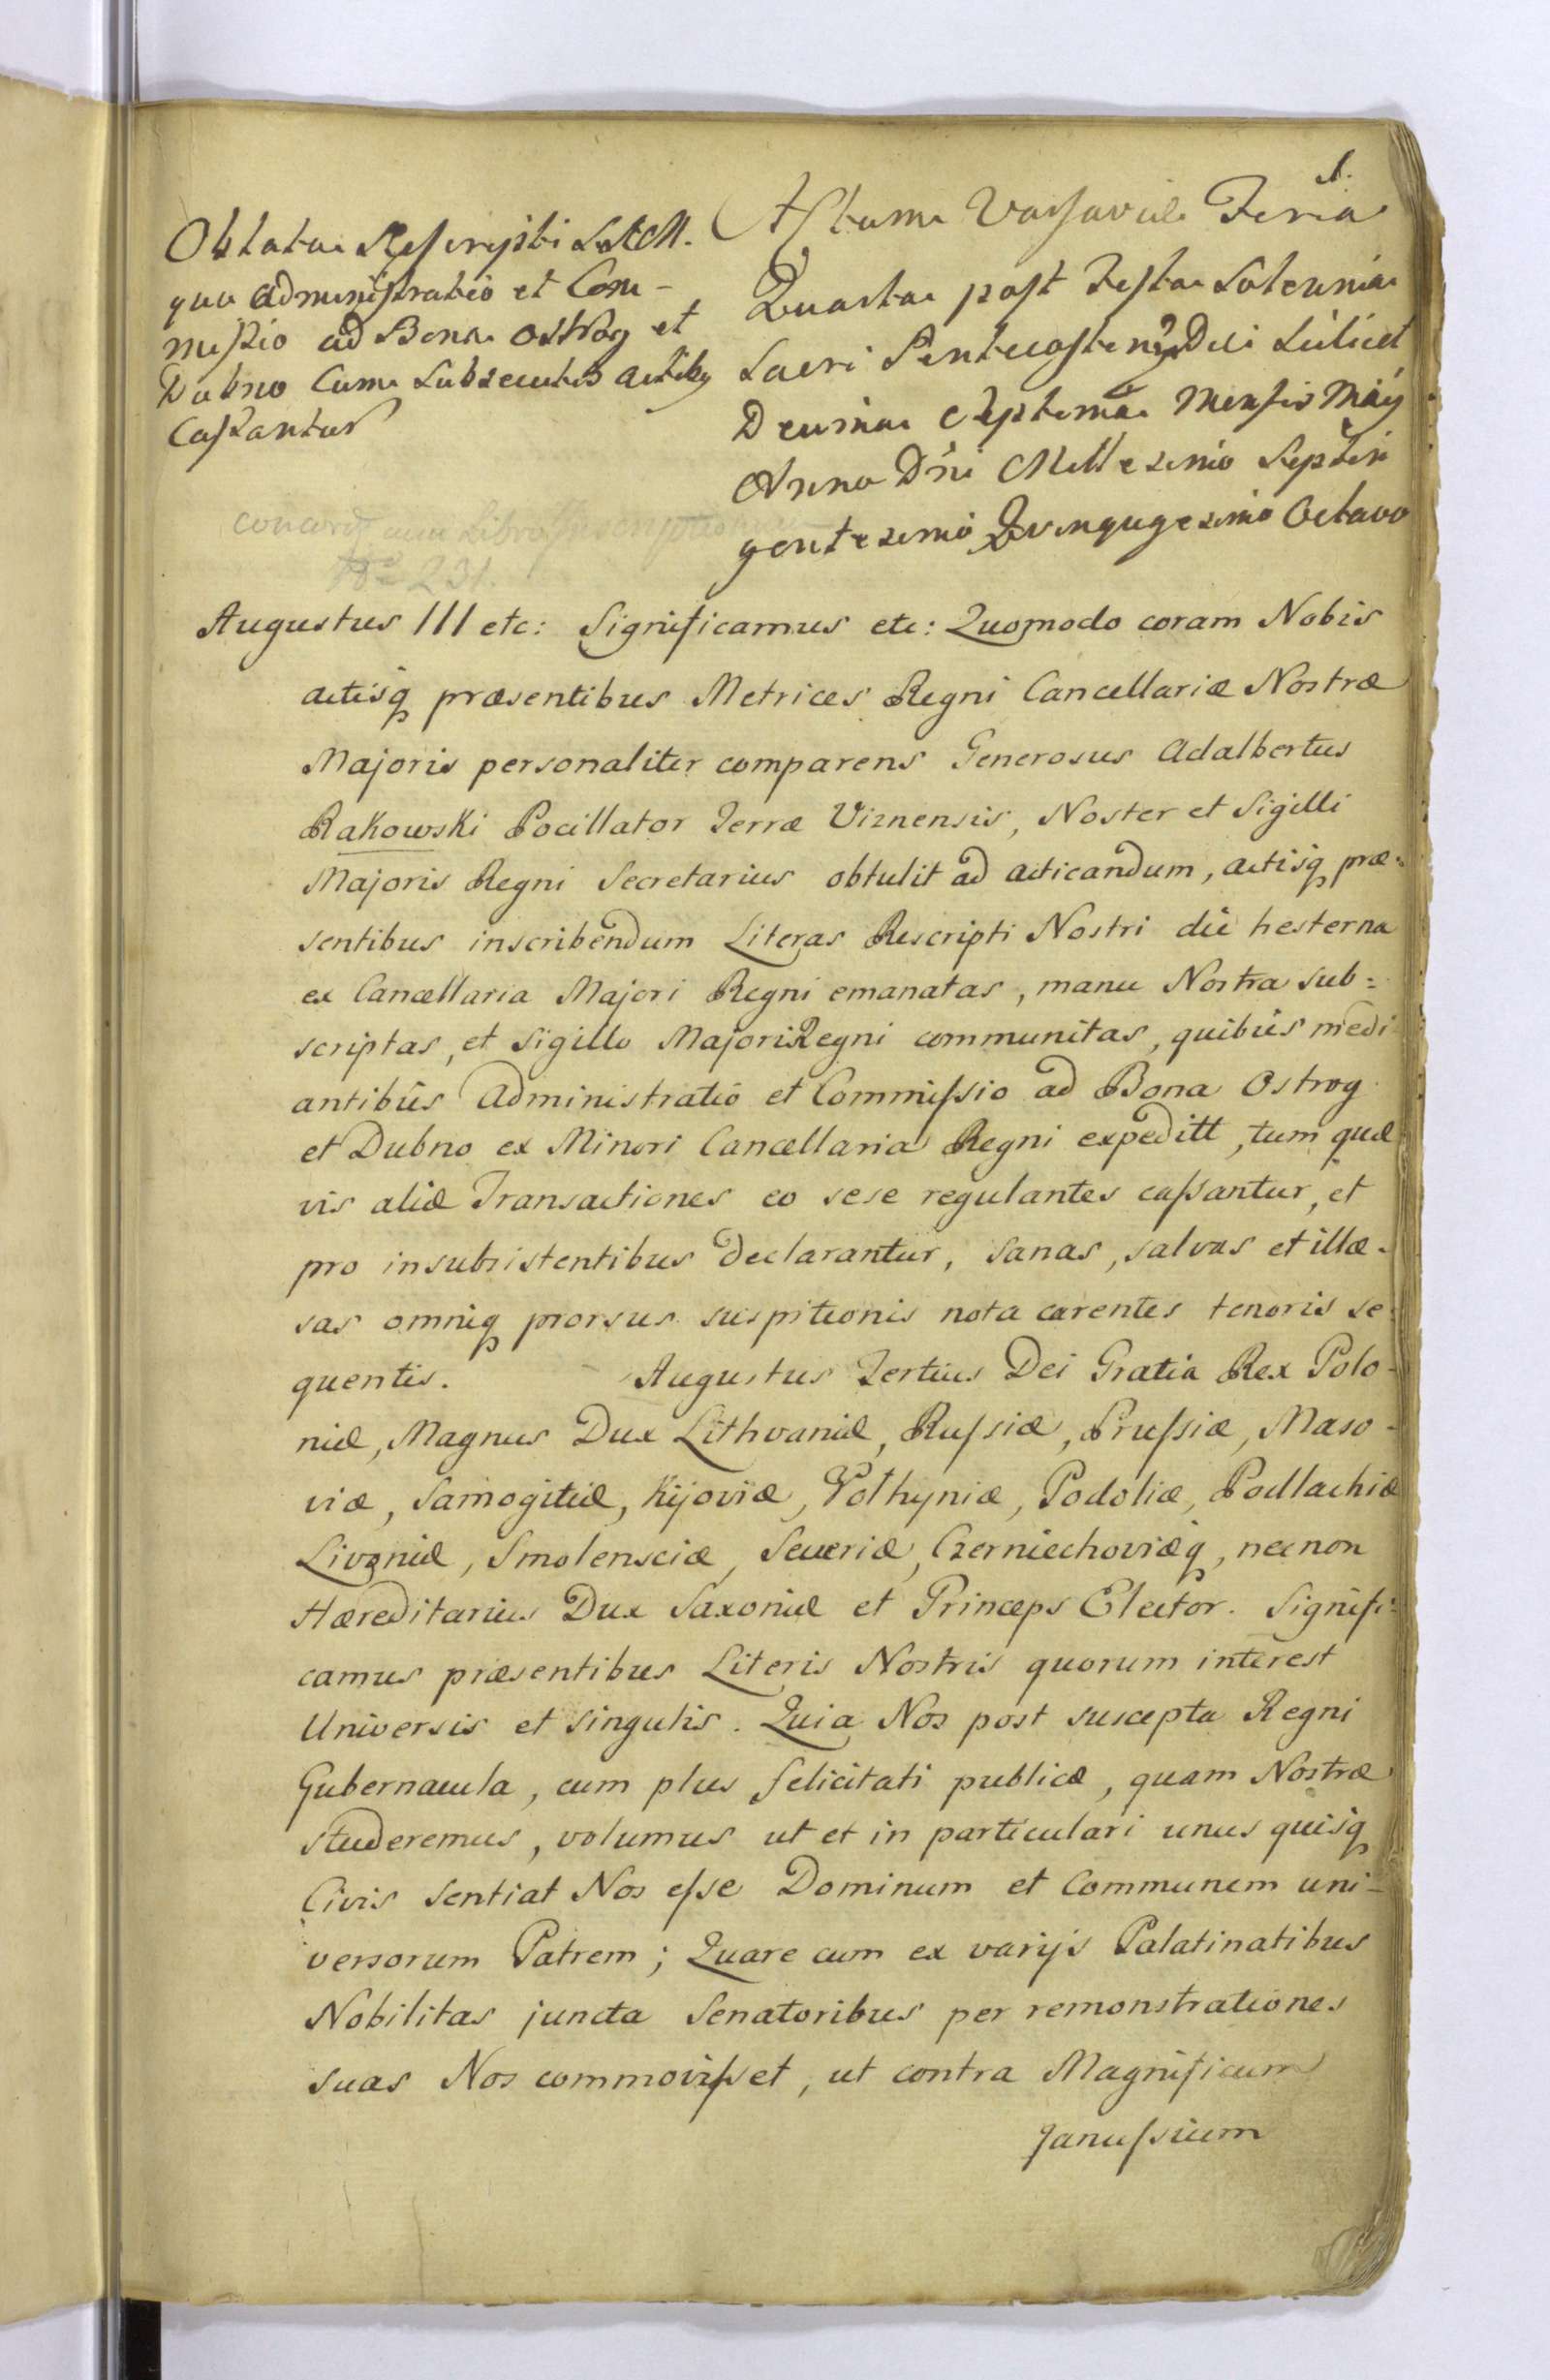 1.
Oblata Rescripti S.R.M.
quo administratio et Com-
missio ad Bona Ostrog et
Dubno cum subsecutis actibq
cassantur
Actum Varsaviæ Feria
Quarta post Festa Solennia
Sacri Pentecostes Die scilicet
Decima Septima Mensis Maij
Anno Dni Millesimo Septin
gentesimo Quinquagesimo Octavo
concord cum Libro Inscriptionum
No 231.
Augustus III etc: Significamus etc: Quomodo coram Nobis
actisq præsentibus Metrices Regni Cancellariæ Nostræ
Majoris personaliter comparens Generosus Adalbertus
Rakowski Pocillator Terræ Viznensis, Noster et Sigilli
Majoris Regni Secretarius obtulit ad acticandum, actisq præ=
sentibus inscribendum Literas Rescripti Nostri die hesterna
ex Cancellaria Majori Regni emanatas, manu Nostra sub=
scriptas, et sigillo Majori Regni communitas, quibus medi
antibus administratio et Commissio ad Bona Ostrog
et Dubno ex Minori Cancellaria Regni expeditt, tum quæ
vis aliæ Transactiones eo sese regulantes cassantur, et
pro insubsistentibus declarantur, sanas, salvas et illæ-
sas omniq prorsus suspitionis nota carentes tenoris se=
quentis. Augustus Tertius Dei Gratia Rex Polo-
niæ, Magnus Dux Lithvaniæ, Russiæ, Prussiæ, Maso-
viæ, Samogitiæ, Kijoviæ, Volhyniæ, Podoliæ, Podlachiæ
Livoniæ, Smolensciæ, Severiæ, Czerniechoviæq, necnon
Hæreditarius Dux Saxoniæ et Princeps Elector. Signifi=
camus præsentibus Literis Nostris quorum interest
Universis et singulis. Quia Nos post suscepta Regni
Gubernacula, cum plus felicitati publicæ, quam Nostræ
studeremus, volumus ut et in particulari unus quisq
Civis sentiat Nos esse Dominum et Communem uni-
versorum Patrem; Quare cum ex varijs Palatinatibus
Nobilitas juncta Senatoribus per remonstrationes
suas Nos commovisset, ut contra Magnificum
Janussium